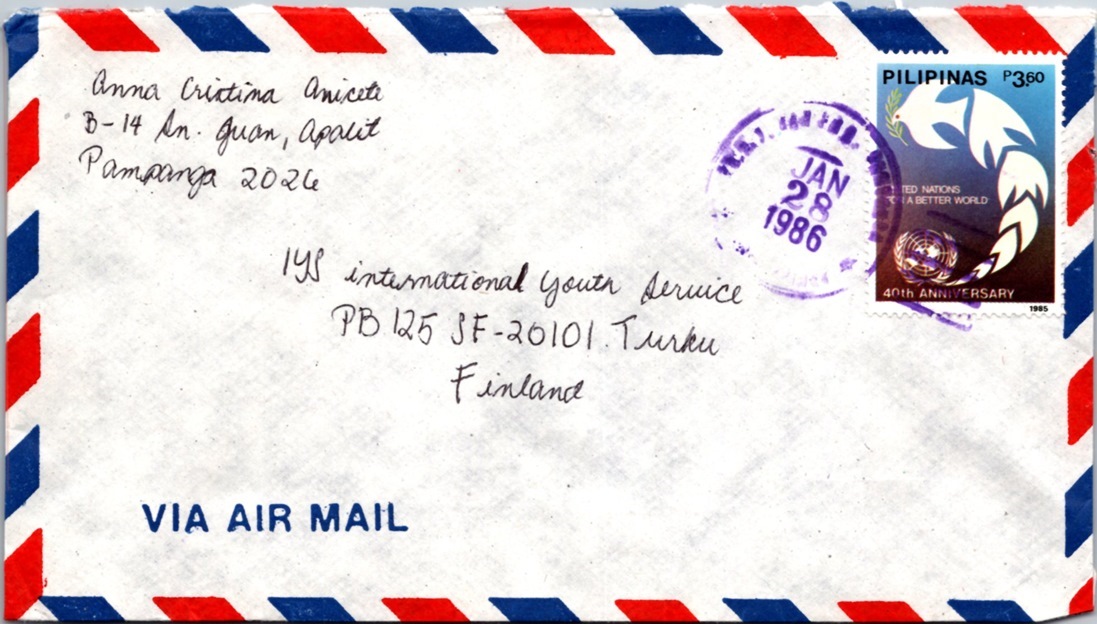 Anna Cristina Anicete
B-14 Sn. Juan, Apalit
Pampanga 2026
IYS international Youth Service
PB 125 SF-20101 Turku
Finland
VIA AIR MAIL
PILIPINAS P3.60
NATIONS
A BETTER WORLD
40th ANNIVERSARY
1985
JAN
28
1986